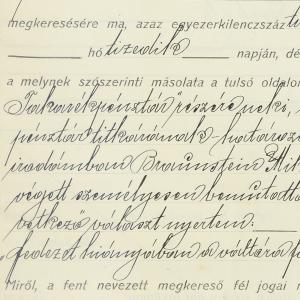 megkeresésére ma, azaz egyezerkilenczszáz ti
hó tizedik napján, dé
a melynek szószerinti másolata a tulsó oldalon
Takarékpénztár részére neki,
pénztár titkárának határozo
irodámban Braunstein Mik
végett személyesen bemutatta
vetkező választ nyertem:
fedezet hiányában a váltóra f
Miről, a fent nevezett megkereső fél jogai m